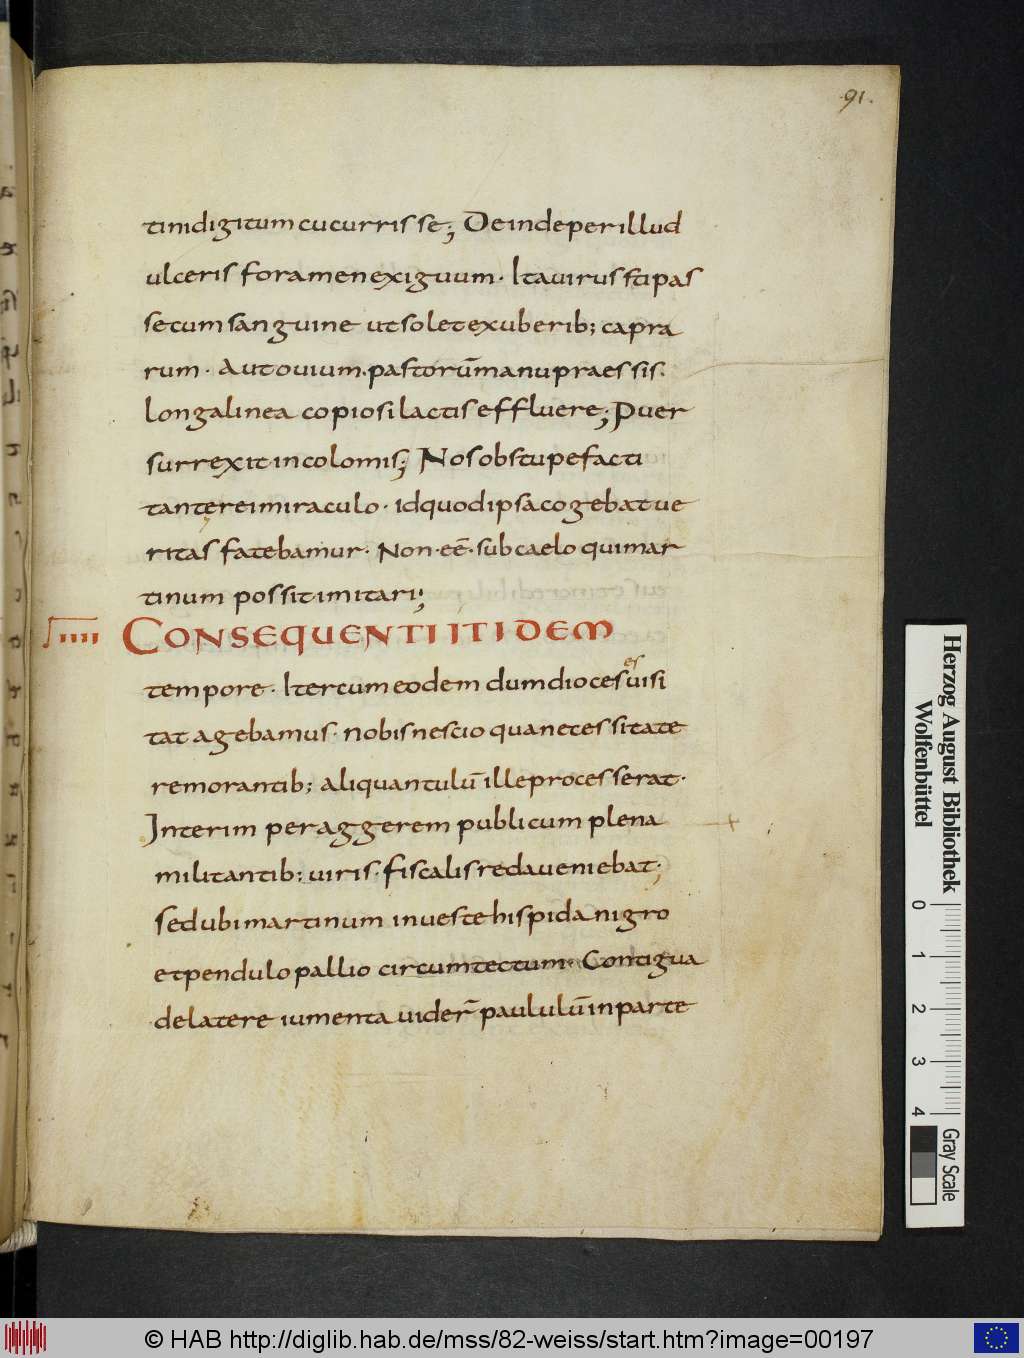 91.
tini digitum cucurrisse; Deinde per illud
ulceris foramen exiguum · Ita virus stipas
se cum sanguine ut solet ex uberib; capra
rum · Aut ovium · pastorū manu praessis ·
longa linea copiosi lactis effluere; Puer
surrexit incolomis; Nos obstupefacti
tante rei miraculo · id quod ipsa cogebat ve
ritas fatebamur · Non · eē · sub caelo qui mar
tinum possit imitari;
IIII CONSEQUENTI ITIDEM
tempore · Iter cum eodem dum dioces es visi
tat agebamus · nobis nescio qua necessitate
remorantib; aliquantulū ille processerat ·
Interim per aggerem publicum plena
militantib; viris · fiscalis reda veniebat;
sed ubi martinum in veste hispida nigro
et pendulo pallio circumtectum · Contigua
de latere iumenta vider̄ paululū in parte
Herzog August Bibliothek
Wolfenbüttel
0 1 2 3 4
Gray Scale
© HAB http://diglib.hab.de/mss/82-weiss/start.htm?image=00197